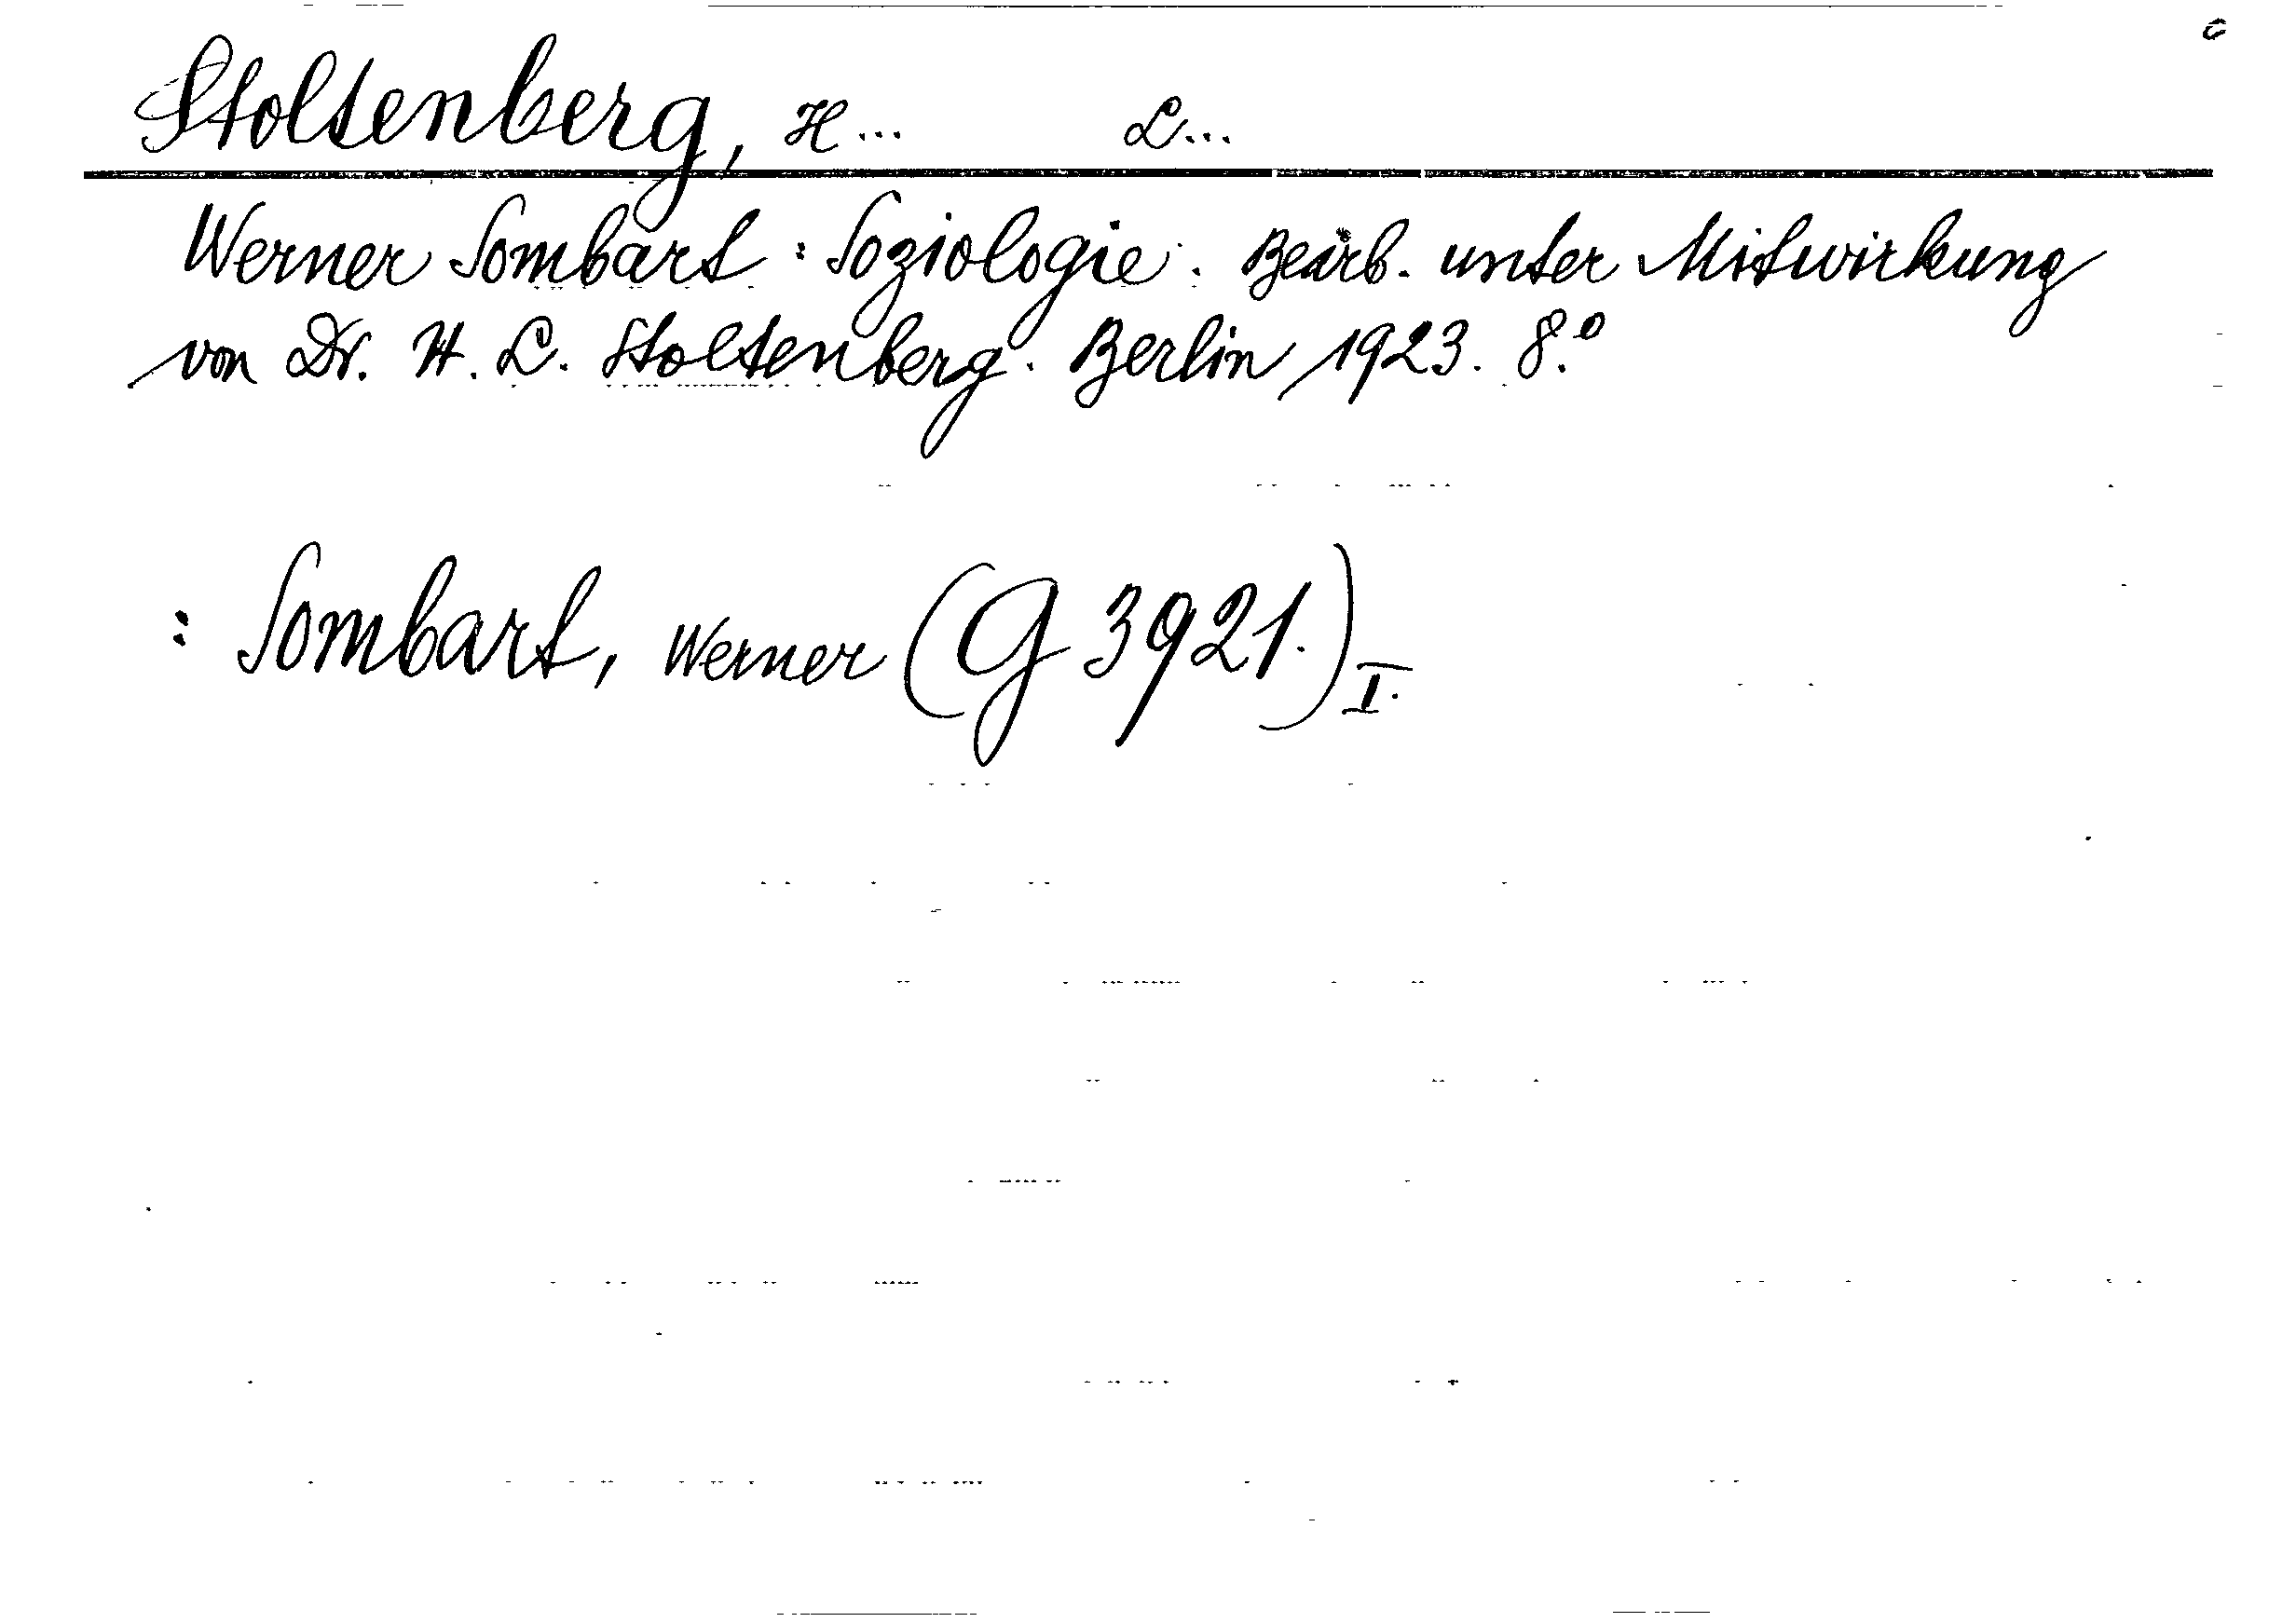 Stoltenberg, H... L...
Werner Sombart: Soziologie. Bearb. unter Mitwirkung
von Dr. H. L. Stoltenberg. Berlin 1923. 8.º
: Sombart, Werner (G 3921.) I.